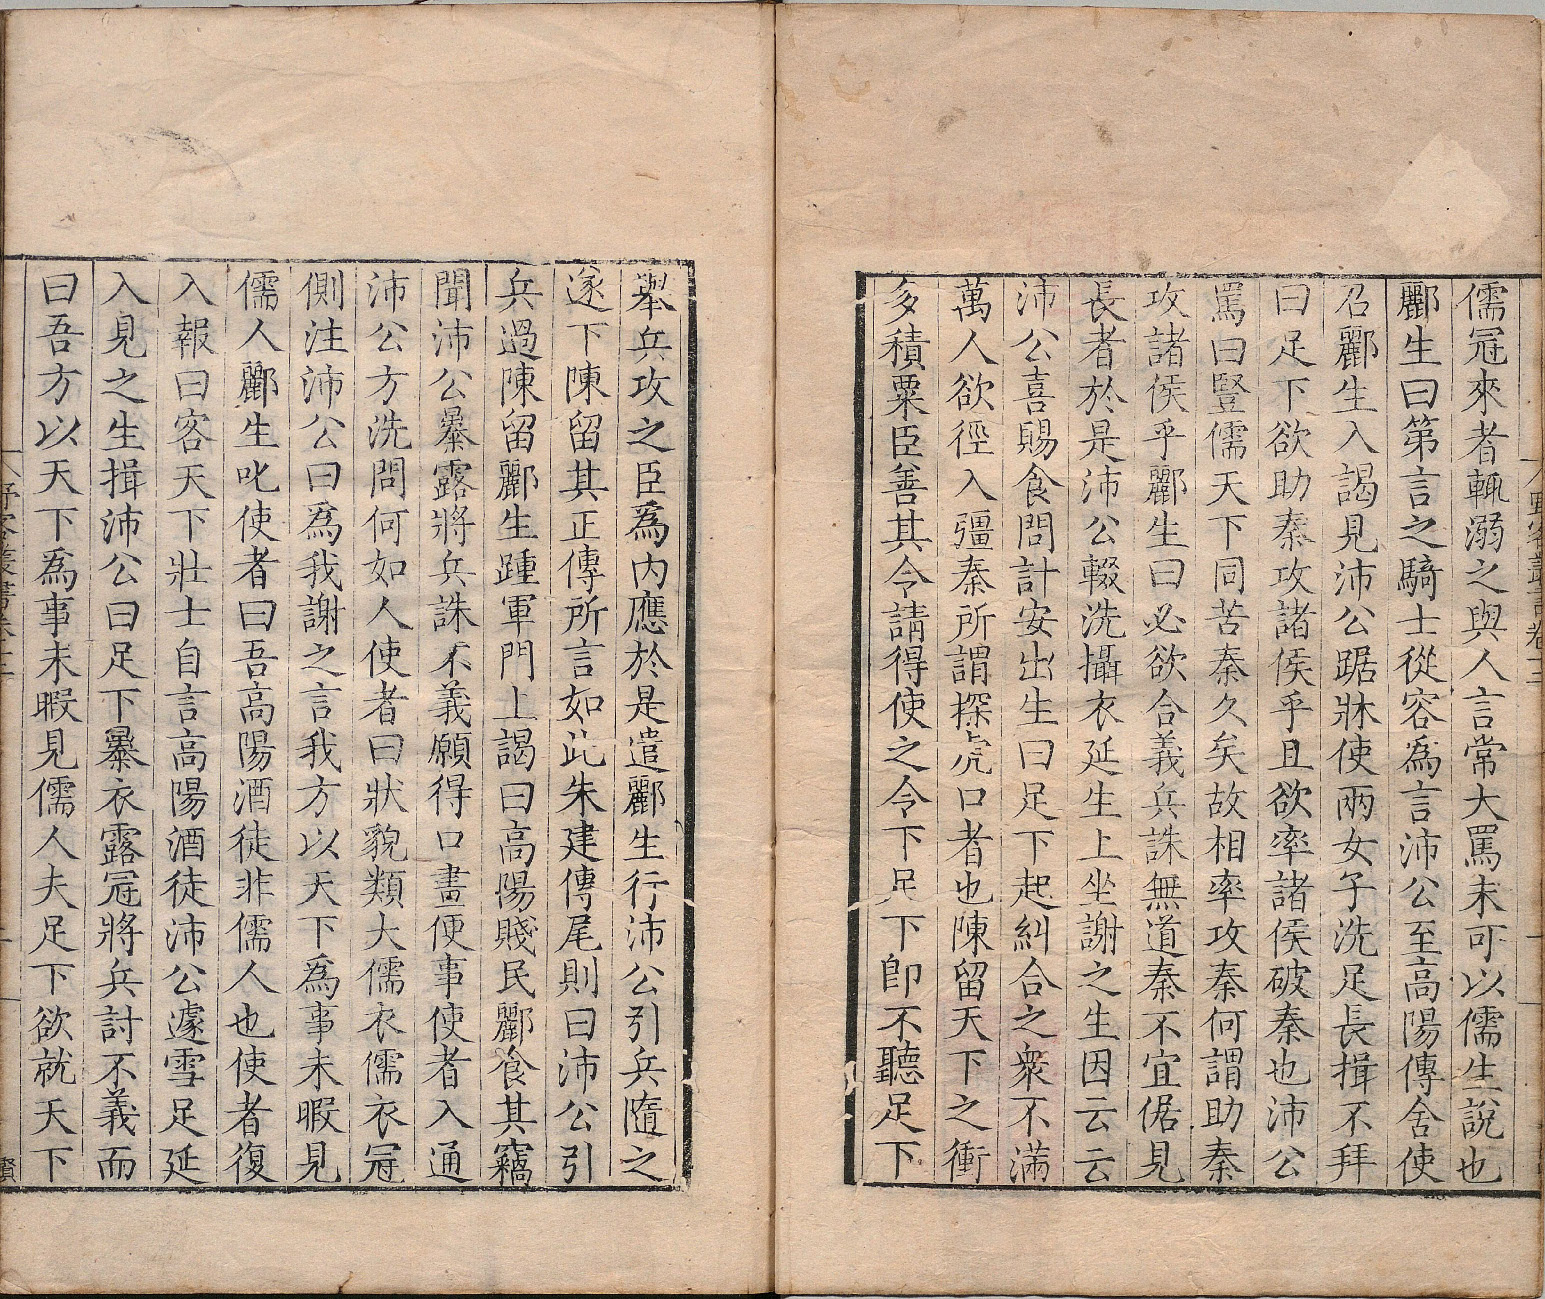 儒冠來者輒溺之與人言常大罵未可以儒生說也
酈生曰第言之騎士從容爲言沛公至高陽傳舍使
召酈生入謁見沛公踞牀使兩女子洗足長揖不拜
曰足下欲助秦攻諸侯乎且欲率諸侯破秦也沛公
罵曰豎儒天下同苦秦久矣故相率攻秦何謂助秦
攻諸侯乎酈生曰必欲合義兵誅無道秦不宜倨見
長者於是沛公輟洗攝衣延生上坐謝之生因云云
沛公喜賜食問計安出生曰足下起糾合之衆不滿
萬人欲徑入彊秦所謂探虎口者也陳留天下之衝
多積粟臣善其令請得使之令下足下卽不聽足下
舉兵攻之臣爲內應於是遣酈生行沛公引兵隨之
遂下陳留其正傳所言如此朱建傳尾則曰沛公引
兵過陳留酈生踵軍門上謁曰高陽賤民酈食其竊
聞沛公暴露將兵誅不義願得口畫便事使者入通
沛公方洗問何如人使者曰狀貌類大儒衣儒衣冠
側注沛公曰爲我謝之言我方以天下爲事未暇見
儒人酈生叱使者曰吾高陽酒徒非儒人也使者復
入報曰客天下壯士自言高陽酒徒沛公遽雪足延
入見之生揖沛公曰足下暴衣露冠將兵討不義而
曰吾方以天下爲事未暇見儒人夫足下欲就天下
野客叢書卷十三